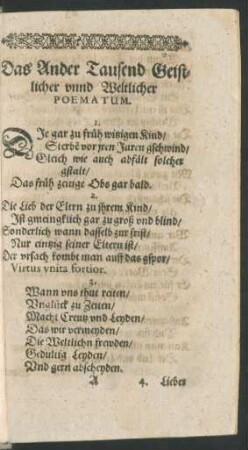 Das Ander Tausend Geist-
licher vnnd Weltlicher
POEMATUM.
1.
DIe gar zu früh witzigen Kind/
Sterbē vor jren Jaren gschwind/
Gleich wie auch abfält solcher
gstalt/
Das früh zeitige Obs gar bald.
2.
Die Lieb der Eltern zu jhrem Kind/
Ist gmeingklich gar zu groß vnd blind/
Sonderlich wann dasselb zur frist/
Nur eintzig seiner Eltern ist/
Der vrsach kombt man auff das gspor/
Virtus vnita fortior.
3.
Wann vns thut reiten/
Vnglück zu Zeiten/
Macht Creutz vnd Leyden/
Das wir vermeyden/
Die Weltlichn frewden/
Gedultig Leyden/
Vnd gern abscheyden.
A 4. Lieber